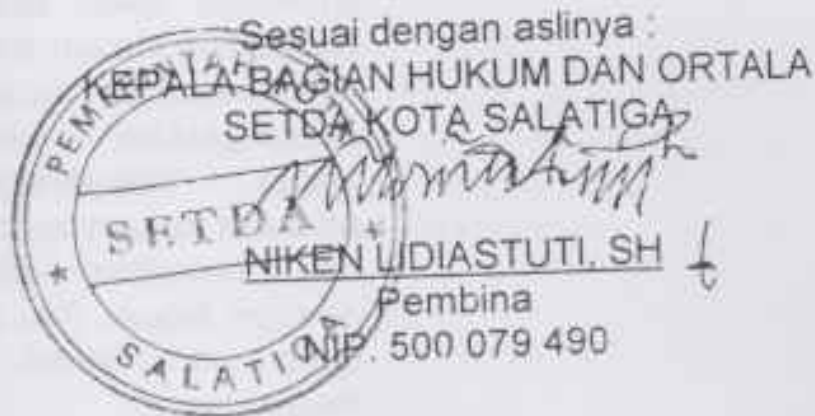 Sesuai dengan aslinya :
KEPALA BAGIAN HUKUM DAN ORTALA
SETDA KOTA SALATIGA
NIKEN LIDIASTUTI, SH
Pembina
NIP. 500 079 490
PEMERINTAH KOTA
SETDA
SALATIGA